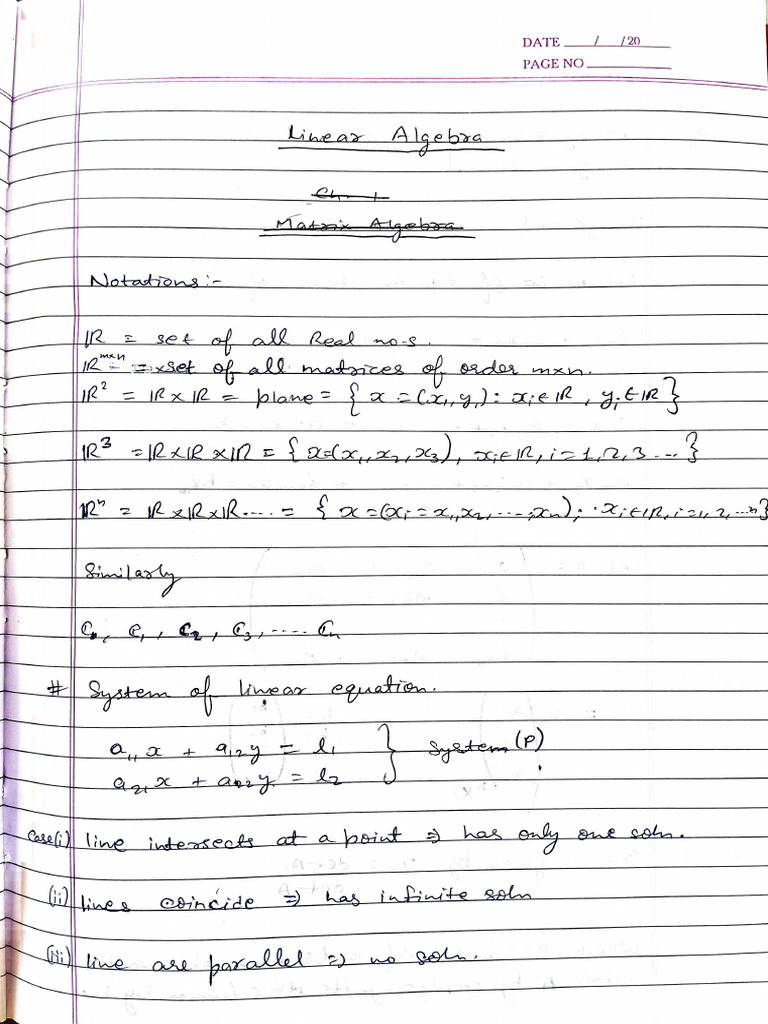 DATE ___/___/20___
PAGE NO ________
Linear Algebra
Ch. 1
Matrix Algebra
Notations:-
ℝ = set of all Real no.s.
ℝᵐˣⁿ = set of all matrices of order m×n.
ℝ² = ℝ×ℝ = plane = { x = (x₁, y₁) : xᵢ∈ℝ, yᵢ∈ℝ }
ℝ³ = ℝ×ℝ×ℝ = { x=(x₁, x₂, x₃), xᵢ∈ℝ, i=1,2,3 ... }
ℝⁿ = ℝ×ℝ×ℝ.... = { x=(xᵢ = x₁, x₂, ..., xₙ); xᵢ∈ℝ, i=1, 2, ...n }
Similarly
C₁, C₂, C₃, ..... Cₙ
# System of linear equation.
a₁₁x + a₁₂y = l₁ } System (P)
a₂₁x + a₂₂y = l₂
Case(i) line intersects at a point ⇒ has only one soln.
(ii) lines coincide ⇒ has infinite soln
(iii) line are parallel ⇒ no soln.